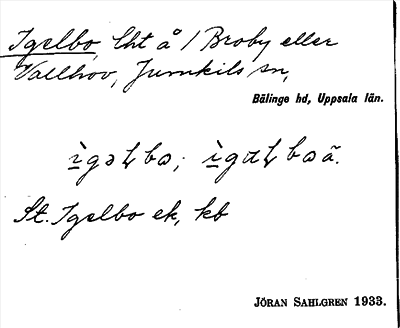 Igelbo, lht å / Broby eller
Vallhov, Jumkils sn,
Bälinge hd, Uppsala län.
St. Igelbo ek, kb
JÖRAN SAHLGREN 1933.